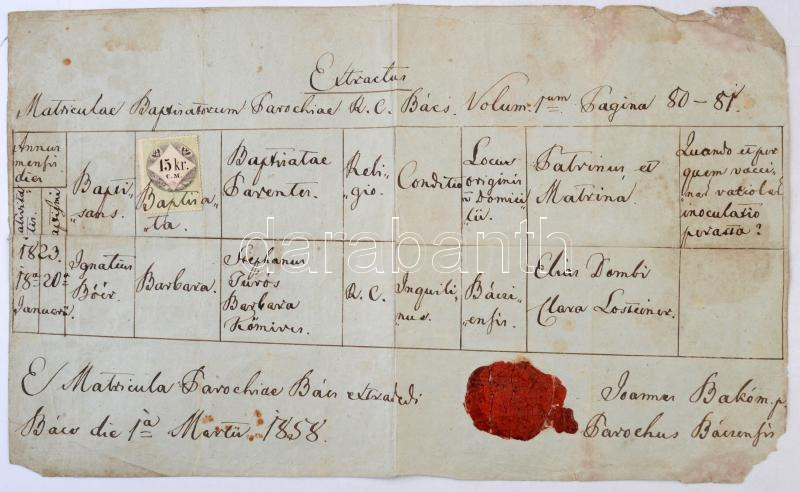 Extractus
Matriculae Baptisatorum Parochiae R. C. Bács. Volum. 1um Pagina 80-81.
Annus
mensis
dies
Bapti-
"sans.
15 kr.
C.M.
Baptisa-
"ta.
Baptisatae
Parentes.
Reli-
"gio.
Conditio
Locus
originis
Patrinus et
Matrina.
Quando et per
quem vacci-
inoculatio
1823.
18a 20a
Januarii
Ignatius
Bóér.
Barbara.
Stephanus
Túros
Barbara
Kömives.
R. C.
Inquili-
"nus.
Bácsi-
"ensis.
Elias Dombi
Clara Losteiner.
darabanth
E Matricula Parochiae Bács extradedi
Bács die 1a Martii 1858.
Joannes Bakó m. p.
Parochus Bácsensis